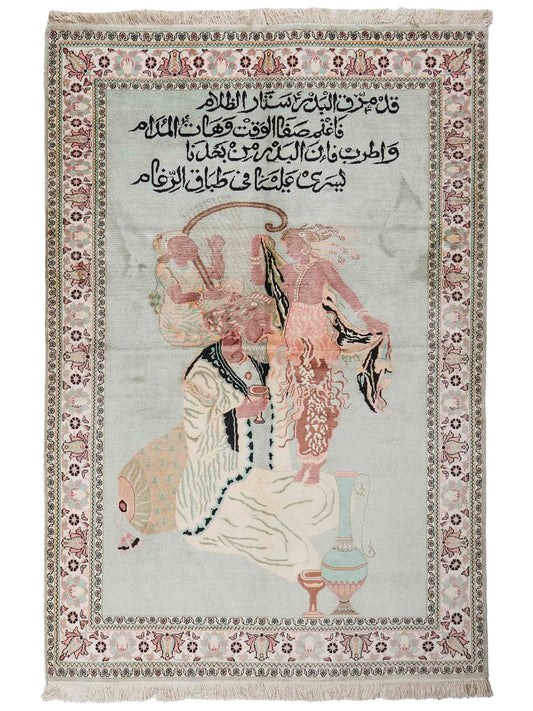 قد مزّق البدر ستار الظلام
فاغنم صفا الوقت وهات المدام
واطرب فإن البدر من بعدنا
يسرى علينا في طباق الرّغام